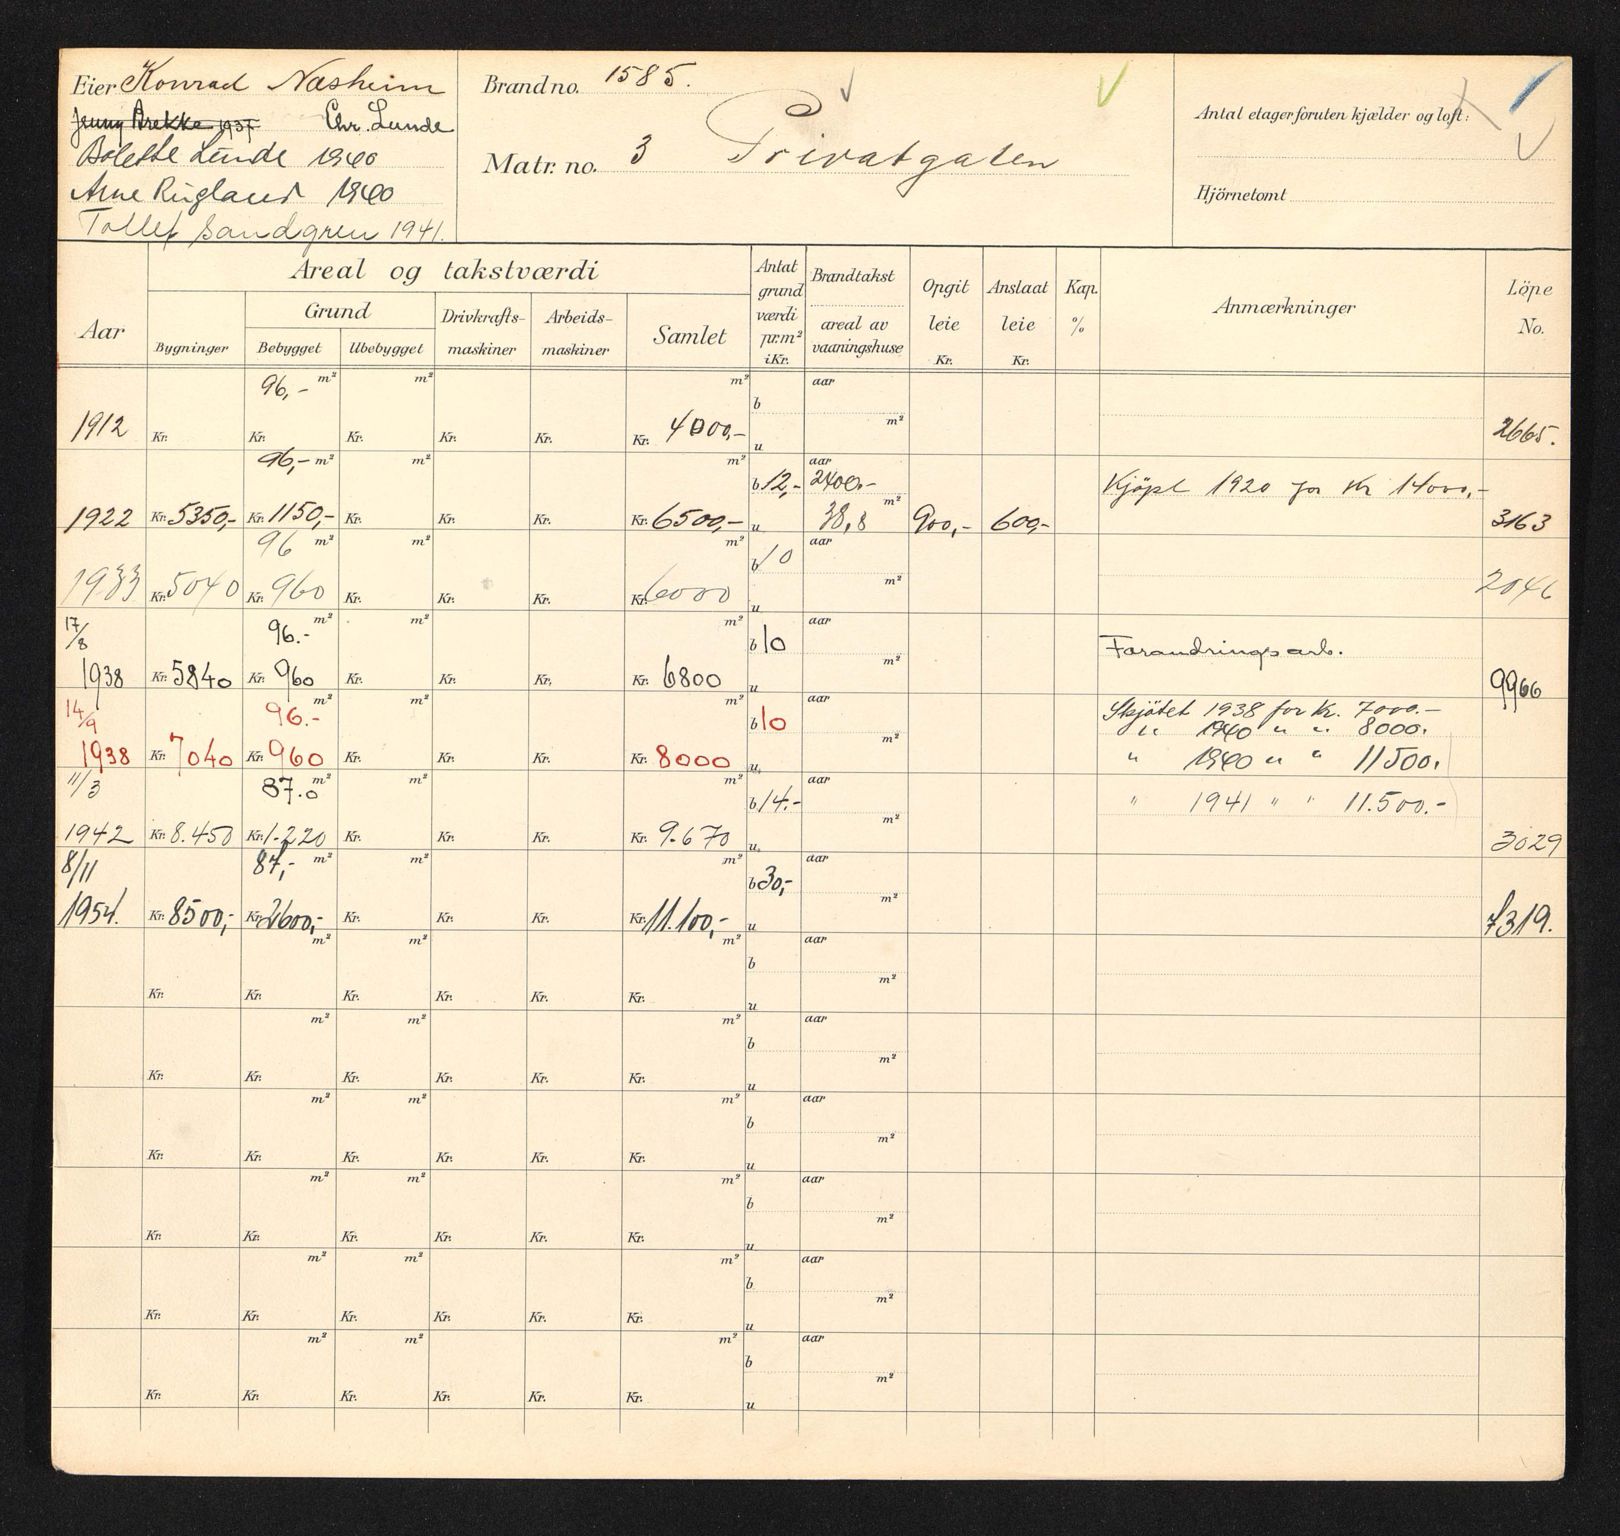 Eier Konrad Næsheim
Jenny Brekke 1937 Chr. Lunde
Bolette Lunde 1940
Arne Rugland 1940
Tollef Sandgren 1941.
Brand no. 1585.
Matr. no. 3 Privatgaten
Antal etager foruten kjælder og loft:
Hjörnetomt
Aar
Areal og takstværdi
Bygninger
Grund
Bebygget Ubebygget
Drivkrafts-
maskiner
Arbeids-
maskiner
Samlet
Antat
grund
værdi
pr.m²
i Kr.
Brandtakst
areal av
vaaningshuse
Opgit
leie
Kr.
Anslaat
leie
Kr.
Kap.
%
Anmærkninger
Löpe
No.
96,- m² m² m² aar
b
m²
1912 Kr. Kr. Kr. Kr. Kr. Kr. 4000,- u 2665.
96,- m² m² m² aar
b 12,- 2400.- Kjöpt 1920 for Kr 14000,-
m²
1922 Kr. 5350,- Kr. 1150,- Kr. Kr. Kr. Kr. 6500,- u 38,8 900,- 600,- 3163
96 m² m² m² aar
b 10
m²
1933 Kr. 5040 Kr. 960 Kr. Kr. Kr. Kr. 6000 u 2046
17/8 96.- m² m² m² aar
b 10 Forandringsarb.
m²
1938 Kr. 5840 Kr. 960 Kr. Kr. Kr. Kr. 6800 u 9966
14/9 96.- m² m² m² aar
b 10 Skjötet 1938 for Kr. 7000.-
m² " 1940 " " 8000.
1938 Kr. 7040 Kr. 960 Kr. Kr. Kr. Kr. 8000 u " 1940 " " 11500.
11/3 87.0 m² m² m² aar
b 14.- " 1941 " " 11.500.-
m²
1942 Kr. 8.450 Kr. 1.220 Kr. Kr. Kr. Kr. 9.670 u 3029
8/11 87,- m² m² m² aar
b 30,-
m²
1954. Kr. 8500,- Kr. 2600,- Kr. Kr. Kr. Kr. 11.100,- u 7319.
m² m² m² aar
b
m²
Kr. Kr. Kr. Kr. Kr. Kr. u
m² m² m² aar
b
m²
Kr. Kr. Kr. Kr. Kr. Kr. u
m² m² m² aar
b
m²
Kr. Kr. Kr. Kr. Kr. Kr. u
m² m² m² aar
b
m²
Kr. Kr. Kr. Kr. Kr. Kr. u
m² m² m² aar
b
m²
Kr. Kr. Kr. Kr. Kr. Kr. u
m² m² m² aar
b
m²
Kr. Kr. Kr. Kr. Kr. Kr. u